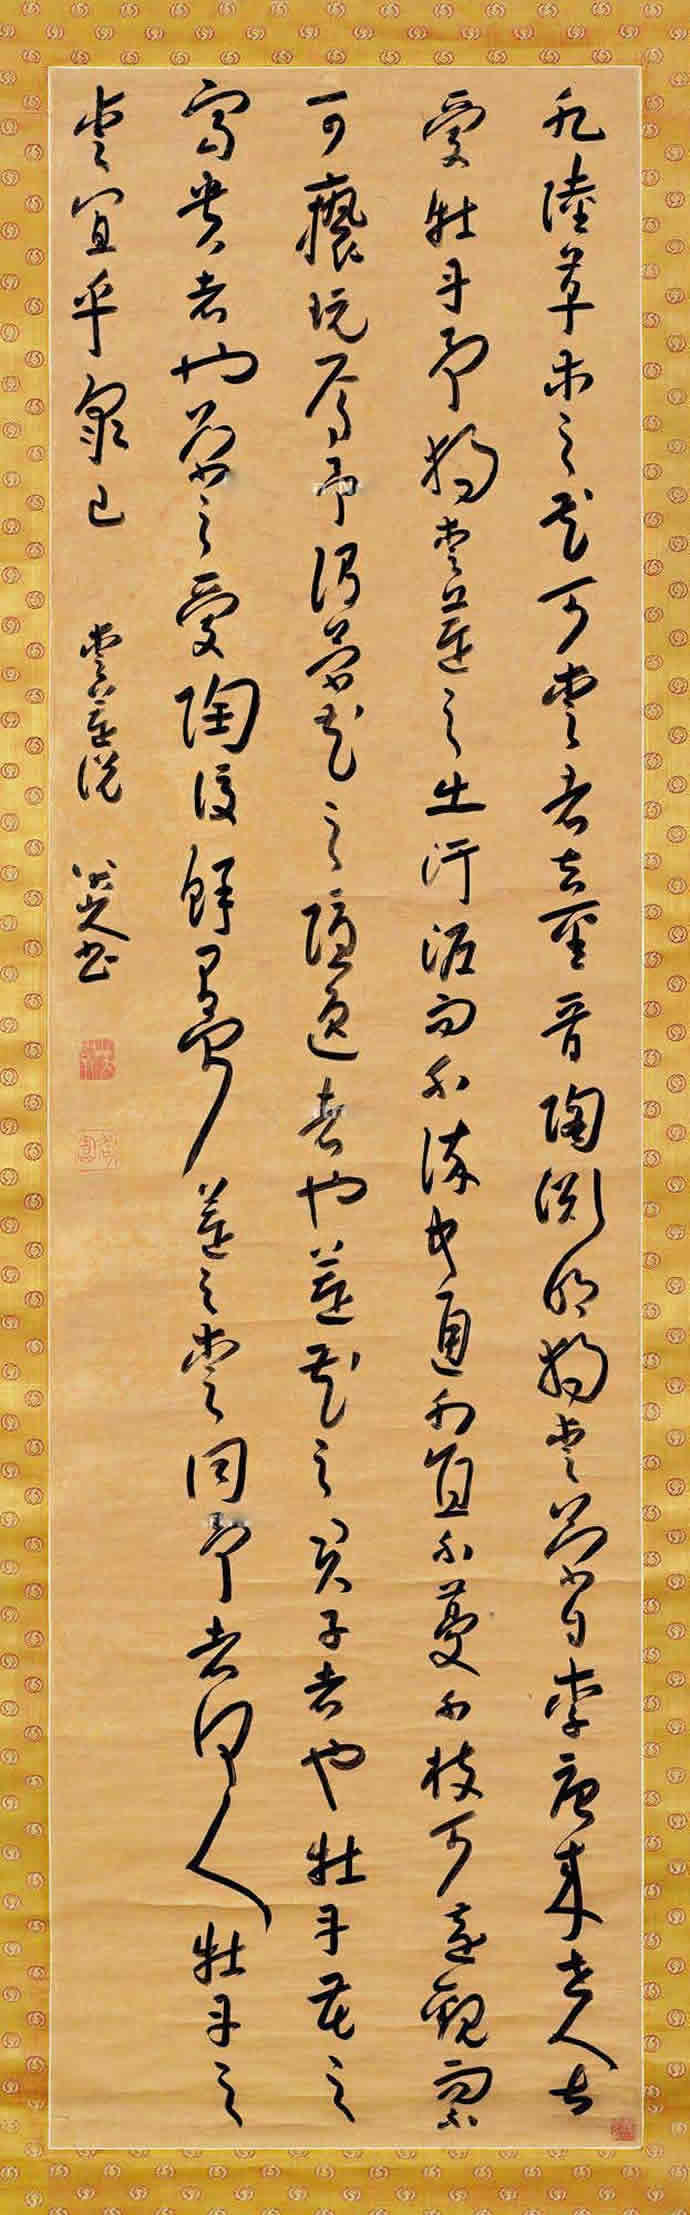 凡陸草木之花可愛者甚蕃晉陶淵明獨愛菊自李唐來世人甚
愛牡丹予獨愛蓮之出淤泥而不染中通外直不蔓不枝可遠觀而不
可褻玩焉予謂菊花之隱逸者也蓮花之君子者也牡丹花之
富貴者也菊之愛陶後鮮有聞蓮之愛同予者何人牡丹之
愛宜乎衆已 愛蓮說 八大山人書